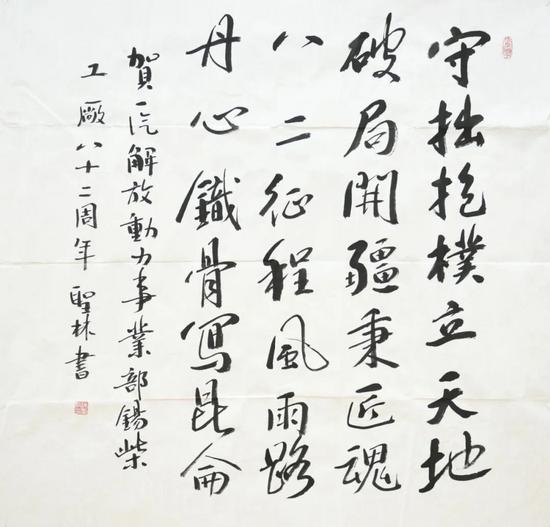 守拙抱樸立天地
破局開疆秉匠魂
八二征程風雨路
丹心鐵骨寫昆侖
賀一汽解放動力事業部錫柴
工廠八十二周年 聖林書